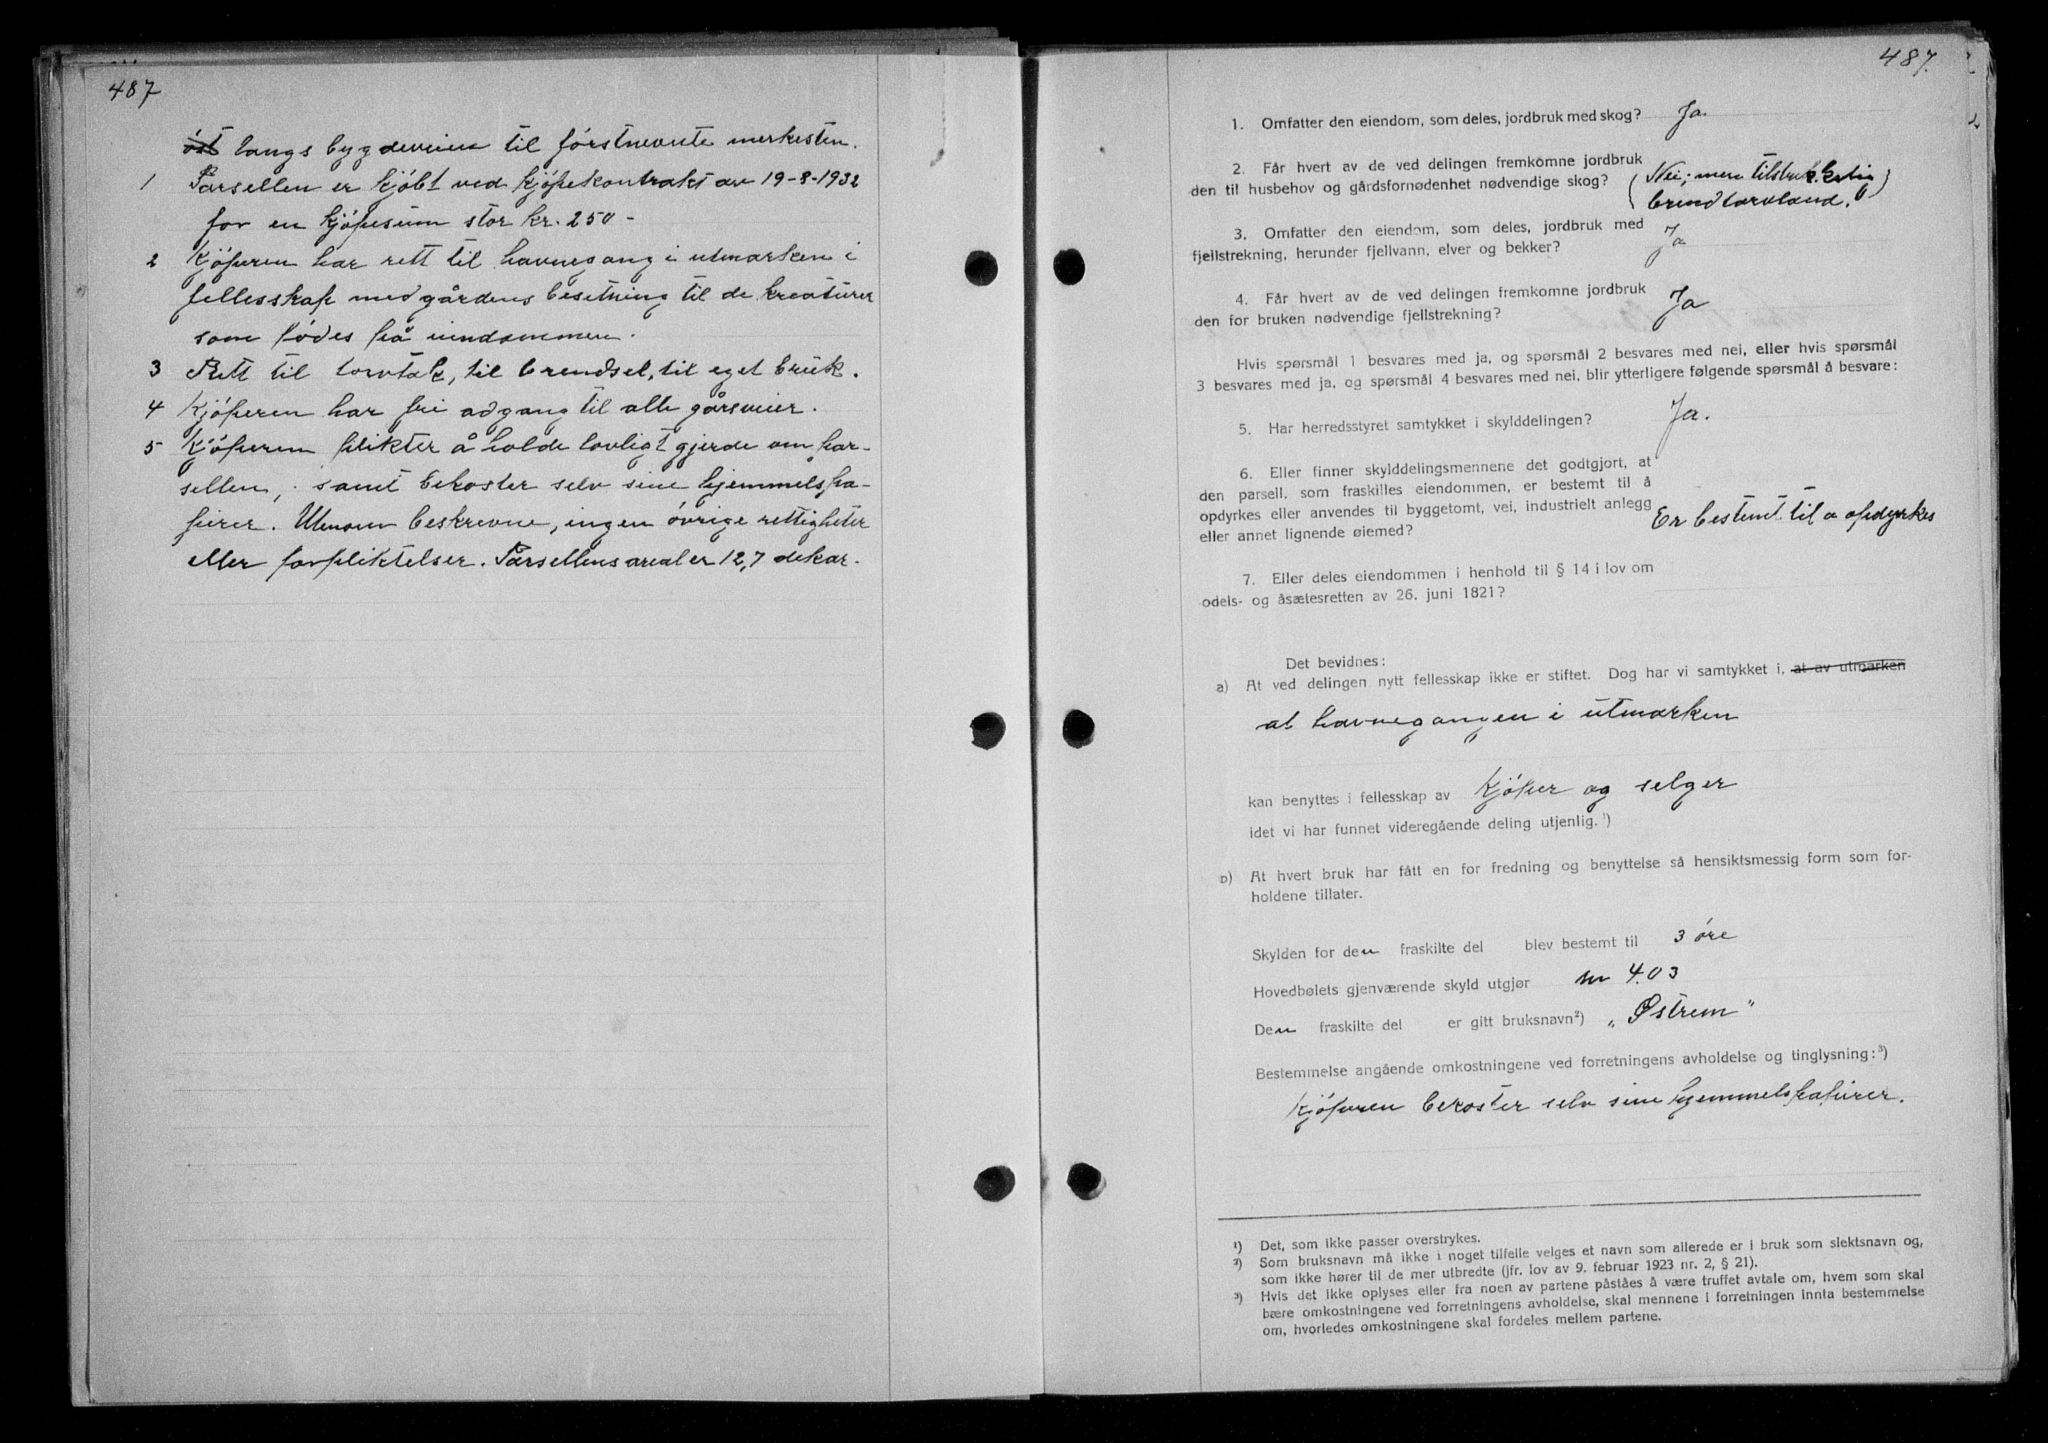 487
øst langs bygdeveien til førstnevnte merkesten.
1 Parsellen er kjøbt ved kjøpekontrakt av 19-8-1932
for en kjøpesum stor kr. 250-
2 Kjøperen har rett til havnegang i utmarken i
fellesskap med gårdens besetning til de kreaturer
som fødes på eiendommen.
3 Rett til torvtak, til brendsel, til eget bruk.
4 Kjøperen har fri adgang til alle gårsveier.
5 Kjøperen plikter å holde lovligt gjerde om par-
sellen, samt bekoster selv sine hjemmelspa-
pirer. Utenom beskrevne, ingen øvrige rettigheter
eller forpliktelser. Parsellens areal er 12,7 dekar.
487.
1. Omfatter den eiendom, som deles, jordbruk med skog? Ja.
2. Får hvert av de ved delingen fremkomne jordbruk
den til husbehov og gårdsfornødenhet nødvendige skog? (Nei; men tilstrekkelig
brendtorvland.)
3. Omfatter den eiendom, som deles, jordbruk med
fjellstrekning, herunder fjellvann, elver og bekker? Ja
4. Får hvert av de ved delingen fremkomne jordbruk
den for bruken nødvendige fjellstrekning? Ja
Hvis spørsmål 1 besvares med ja, og spørsmål 2 besvares med nei, eller hvis spørsmål
3 besvares med ja, og spørsmål 4 besvares med nei, blir ytterligere følgende spørsmål å besvare:
5. Har herredsstyret samtykket i skylddelingen? Ja.
6. Eller finner skylddelingsmennene det godtgjort, at
den parsell, som fraskilles eiendommen, er bestemt til å
opdyrkes eller anvendes til byggetomt, vei, industrielt anlegg
eller annet lignende øiemed? Er bestemt til å opdyrkes
7. Eller deles eiendommen i henhold til § 14 i lov om
odels- og åsætesretten av 26. juni 1821?
Det bevidnes:
a) At ved delingen nytt fellesskap ikke er stiftet. Dog har vi samtykket i, at av utmarken
at havnegangen i utmarken
kan benyttes i fellesskap av kjøper og selger
idet vi har funnet videregående deling utjenlig.¹)
b) At hvert bruk har fått en for fredning og benyttelse så hensiktsmessig form som for-
holdene tillater.
Skylden for den fraskilte del blev bestemt til 3 øre
Hovedbølets gjenværende skyld utgjør 4.03
Den fraskilte del er gitt bruksnavn²) „Østrem"
Bestemmelse angående omkostningene ved forretningens avholdelse og tinglysning:³)
Kjøperen bekoster selv sine hjemmelspapirer.
¹) Det, som ikke passer overstrykes.
²) Som bruksnavn må ikke i noget tilfelle velges et navn som allerede er i bruk som slektsnavn og,
som ikke hører til de mer utbredte (jfr. lov av 9. februar 1923 nr. 2, § 21).
³) Hvis det ikke oplyses eller fra noen av partene påståes å være truffet avtale om, hvem som skal
bære omkostningene ved forretningens avholdelse, skal mennene i forretningen innta bestemmelse
om, hvorledes omkostningene skal fordeles mellem partene.